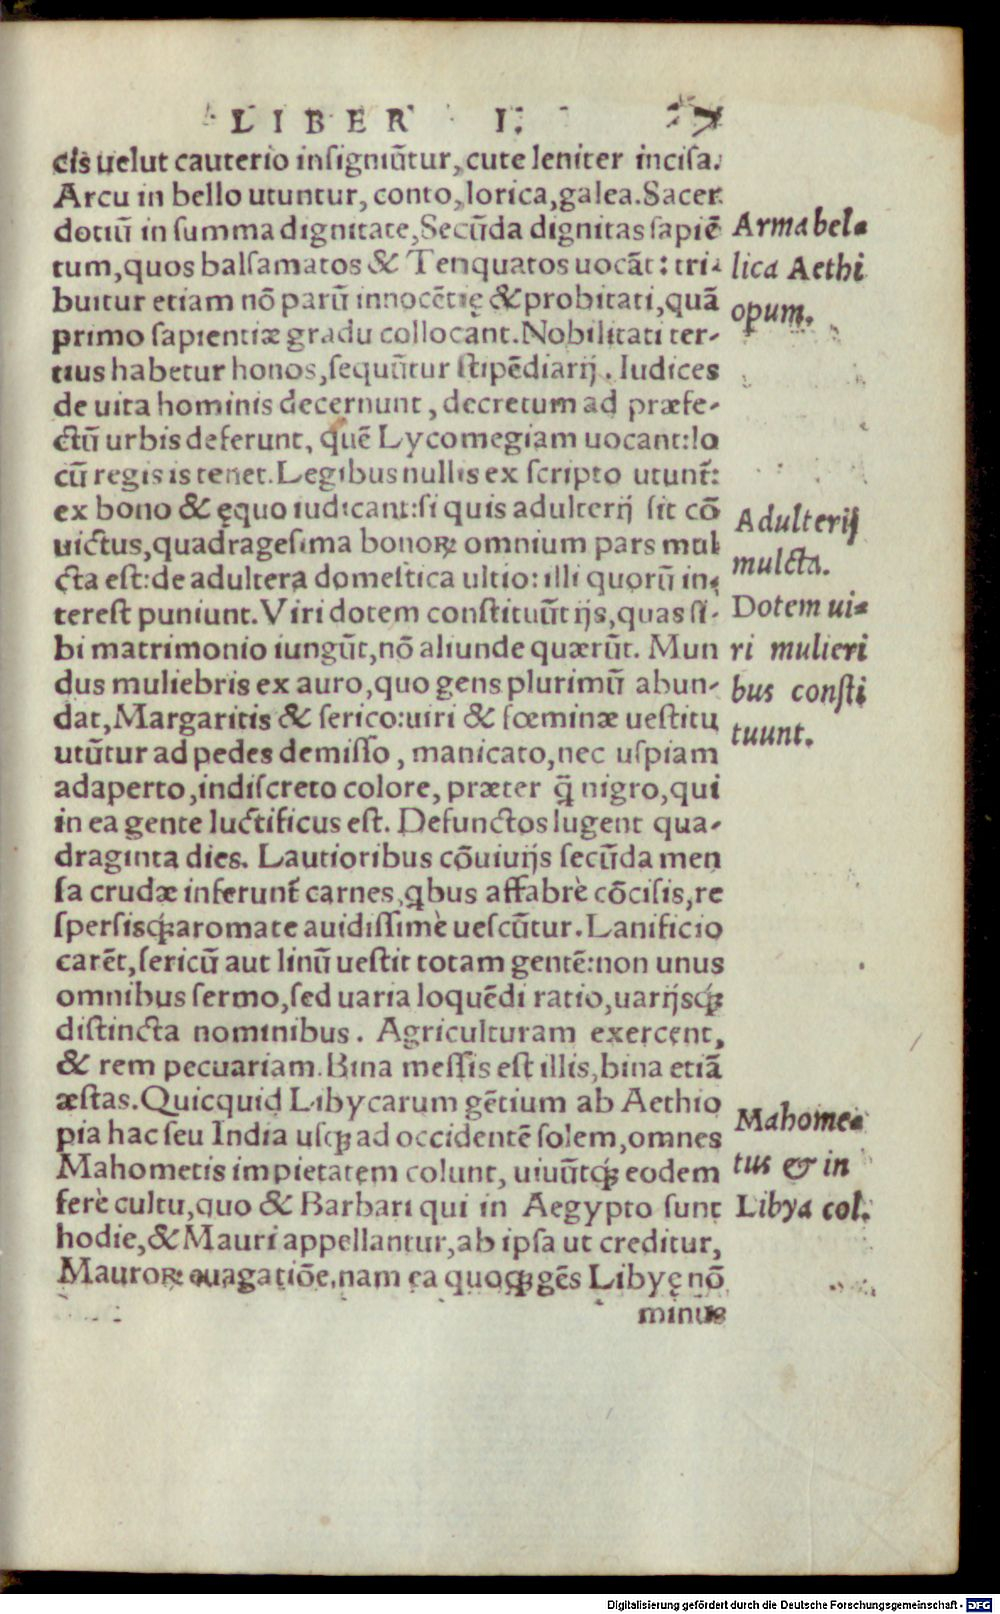 LIBER I.
cis uelut cauterio insigniũtur, cute leniter incisa.
Arcu in bello utuntur, conto, lorica, galea. Sacer
dotiũ in summa dignitate, Secũda dignitas sapiẽ
tum, quos balsamatos & Tenquatos uocãt: tri-
buitur etiam nõ parũ innocẽtię & probitati, quã
primo sapientiæ gradu collocant. Nobilitati ter-
tius habetur honos, sequũtur stipẽdiarij. Iudices
de uita hominis decernunt, decretum ad præfe-
ctũ urbis deferunt, quẽ Lycomegiam uocant: lo
cũ regis is tenet. Legibus nullis ex scripto utunt̃:
ex bono & ęquo iudicant: si quis adulterij sit cõ
uictus, quadragesima bonoꝝ omnium pars mul
cta est: de adultera domestica ultio: illi quorũ in-
terest puniunt. Viri dotem constituũt ijs, quas si-
bi matrimonio iungũt, nõ aliunde quærũt. Mun
dus muliebris ex auro, quo gens plurimũ abun-
dat, Margaritis & serico: uiri & fœminæ uestitu
utũtur ad pedes demisso, manicato, nec uspiam
adaperto, indiscreto colore, præter q̃ nigro, qui
in ea gente luctificus est. Defunctos lugent qua-
draginta dies. Lautioribus cõuiuijs secũda men
sa crudæ inferunt̃ carnes, qbus affabrè cõcisis, re
spersisq́ꝫ aromate auidissimè uescũtur. Lanificio
carẽt, sericũ aut linũ uestit totam gentẽ: non unus
omnibus sermo, sed uaria loquẽdi ratio, uarijsq́ꝫ
distincta nominibus. Agriculturam exercent,
& rem pecuariam. Bina messis est illis, bina etiã
æstas. Quicquid Libycarum gẽtium ab Aethio
pia hac seu India usqꝫ ad occidentẽ solem, omnes
Mahometis impietatem colunt, uiuũtq́ꝫ eodem
ferè cultu, quo & Barbari qui in Aegypto sunt
hodie, & Mauri appellantur, ab ipsa ut creditur,
Mauroꝝ euagatiõe, nam ea quoqꝫ gẽs Libyę nõ
minus
Arma bel-
lica Aethi
opum.
Adulterij
mulcta.
Dotem ui-
ri mulieri
bus consti
tuunt.
Mahome-
tus & in
Libya col.
Digitalisierung gefördert durch die Deutsche Forschungsgemeinschaft - DFG